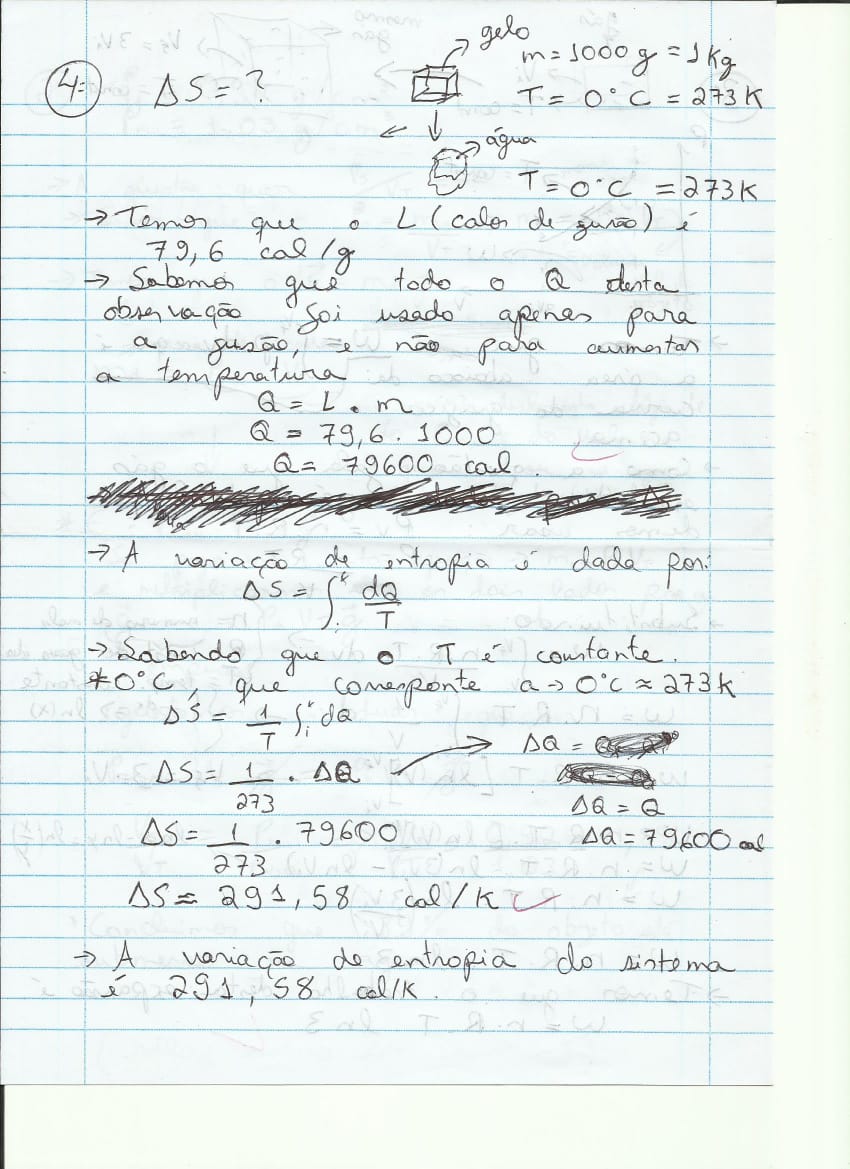 4=
ΔS = ?
gelo
m = 1000 g = 1 Kg
T = 0°C = 273 K
água
T = 0°C = 273 K
→ Temos que o L (calor de fusão) é
79,6 cal/g
→ Sabemos que todo o Q desta
observação foi usado apenas para
a fusão, e não para aumentar
a temperatura
Q = L . m
Q = 79,6 . 1000
Q = 79600 cal.
→ A variação de entropia é dada por:
ΔS = ∫ᵢᶠ dQ/T
→ Sabendo que o T é constante.
*0°C, que corresponte a → 0°C ≈ 273 K
ΔS = 1/T ∫ᵢᶠ dQ
ΔQ =
ΔS = 1/273 . ΔQ
ΔQ = Q
ΔS = 1/273 . 79600
ΔQ = 79600 cal
ΔS ≈ 291,58 cal/K
→ A variação de entropia do sistema
é 291,58 cal/K.